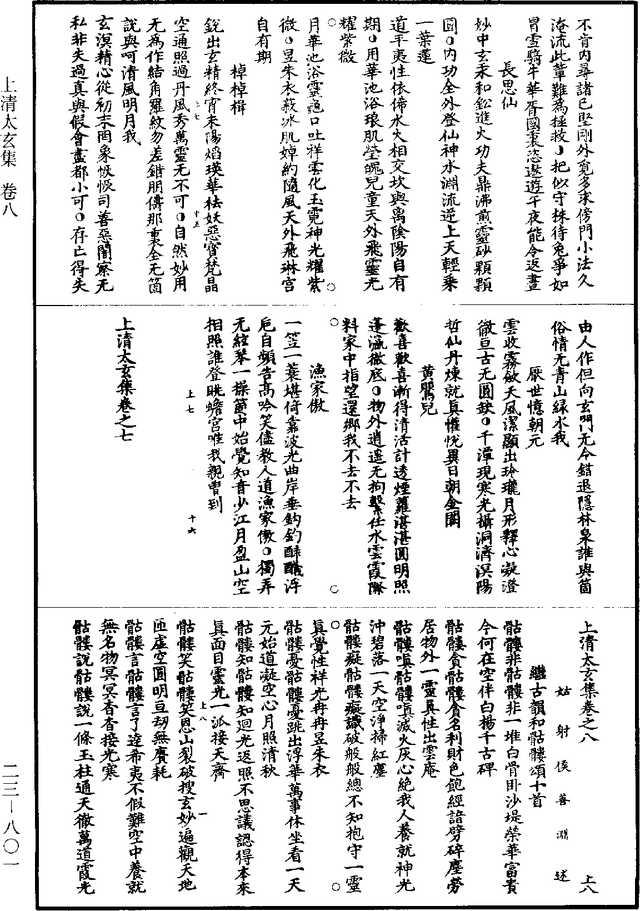 上清太玄集 卷八
不肯内尋諸己堅剛外覓多乘傍門小法久
淹流此輩難為拯救○把似守株待兔爭如
冒雪騎牛華胥國裏恣遨遊午夜能令返晝
長思仙
妙中玄乘和鉛進火功夫鼎沸煎靈砂顆顆
圓○内功全外登仙神水淵流逆上天輕乘
一葉蓮
道平夷性依俙水火相交坎與离陰陽自有
期○用華池浴琅肌瑩魄兒童天外飛靈光
耀紫微
月華池浴靈龜口吐祥雲化玉霓神光耀紫
微○昱朱衣蔌冰肌婥約隨風天外飛琳宮
自有期
棹棹楫
銳出玄精終宵未陽焰瑛華祛妖惡寶梵晶
空通照過丹風秀萬靈无不可○自然妙用
无為作結角羅紋勿差錯朋儔那裏全无箇
說與呵清風明月我
玄溟精心從初宗罔象惔惔司善惡闇察无
私非失過真與假會盡都小可○存亡得失
由人作但向玄門无令錯退隱林泉誰與箇
俗情无青山綠水我
厭世憶朝元
雲收霧斂天風潔顯出玲瓏月形釋心凝澄
徹亘古无圓缺○千潭現寒光攝洞濟溟陽
哲仙丹煉就真懽悅異日朝金闕
黄鸎兒
歡喜歡喜漸得清活計透煙蘿湛湛圓明照
蓬瀛徹底○物外逍遥无拘繫任水雲霞際
料家中指望還鄉我不去不去
漁家傲
一笠一蓑堪倚靠波光曲岸垂鈎釣醉醺浮
巵自頻告高吟笑儘教人道漁家傲○獨弄
无絃琴一操箇中始覺知音少江月盈山空
相照誰登眺蟾宮唯我親曽到
上清太玄集卷之七
上清太玄集卷之八
姑射侯善淵述
繼古韻和骷髏頌十首
骷髏非骷髏非一堆白骨卧沙堤榮華富貴
今何在空伴白楊千古碑
骷髏貪骷髏貪名利財色飽經諳劈碎塵勞
居物外一靈真性出雲庵
骷髏嗔骷髏嗔滅火灰心絶我人養就神光
沖碧落一天空浄掃紅塵
骷髏癡骷髏癡識破般般總不知抱守一靈
真覺性祥光冉冉昱朱衣
骷髏憂骷髏憂跳出浮華萬事休坐看一天
元始道凝空心月照清秋
骷髏知骷髏知迴光返照不思議認得本來
真面目靈光一派接天齊
骷髏笑骷髏笑恩山裂破搜玄妙遍觀天地
匝虚空圓明亘劫無賡耗
骷髏言骷髏言言了達希夷不假難空中養就
無名物冥冥杳杳接光寒
骷髏說骷髏說一條玉柱通天徹萬道霞光
二三—八〇一